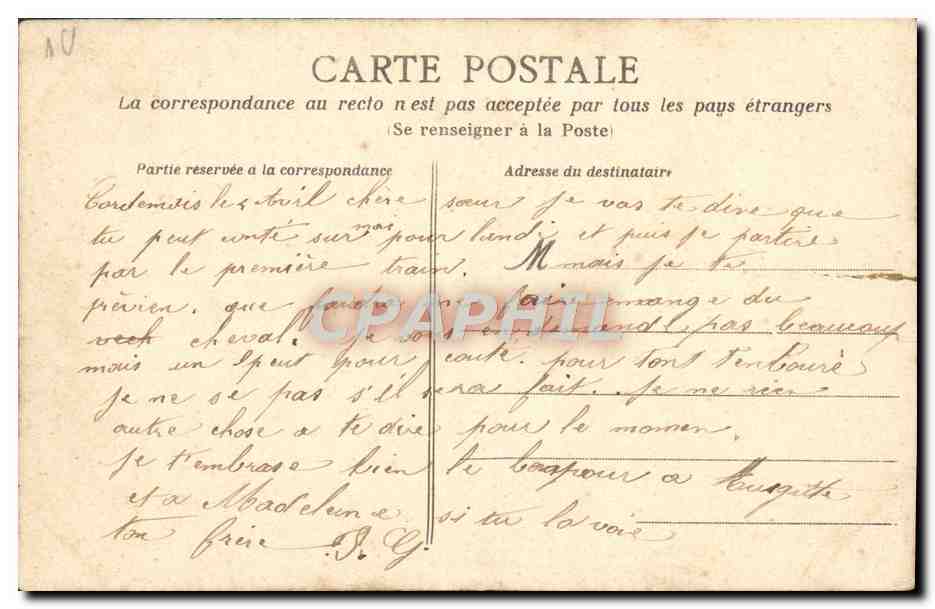 CARTE POSTALE
La correspondance au recto n'est pas acceptée par tous les pays étrangers
(Se renseigner à la Poste)
Partie réservée a la correspondance
Adresse du destinataire
Cordemais le 4 Avril chère sœur je vas te dire que
tu peut conté sur moi pour lundi et puis je partiré
par le première train. M mais je te
prévien. que faudra me faire mange du
cheval. je vous en demande pas beaucoup
mais un peut pour pour tont
je ne se pas s'il sera fait. je ne rien
autre chose a te dire pour le momen.
je t'embrase bien le bonjour a
et a Madeleine si tu la voie
ton frère J. G.
CPAPHIL